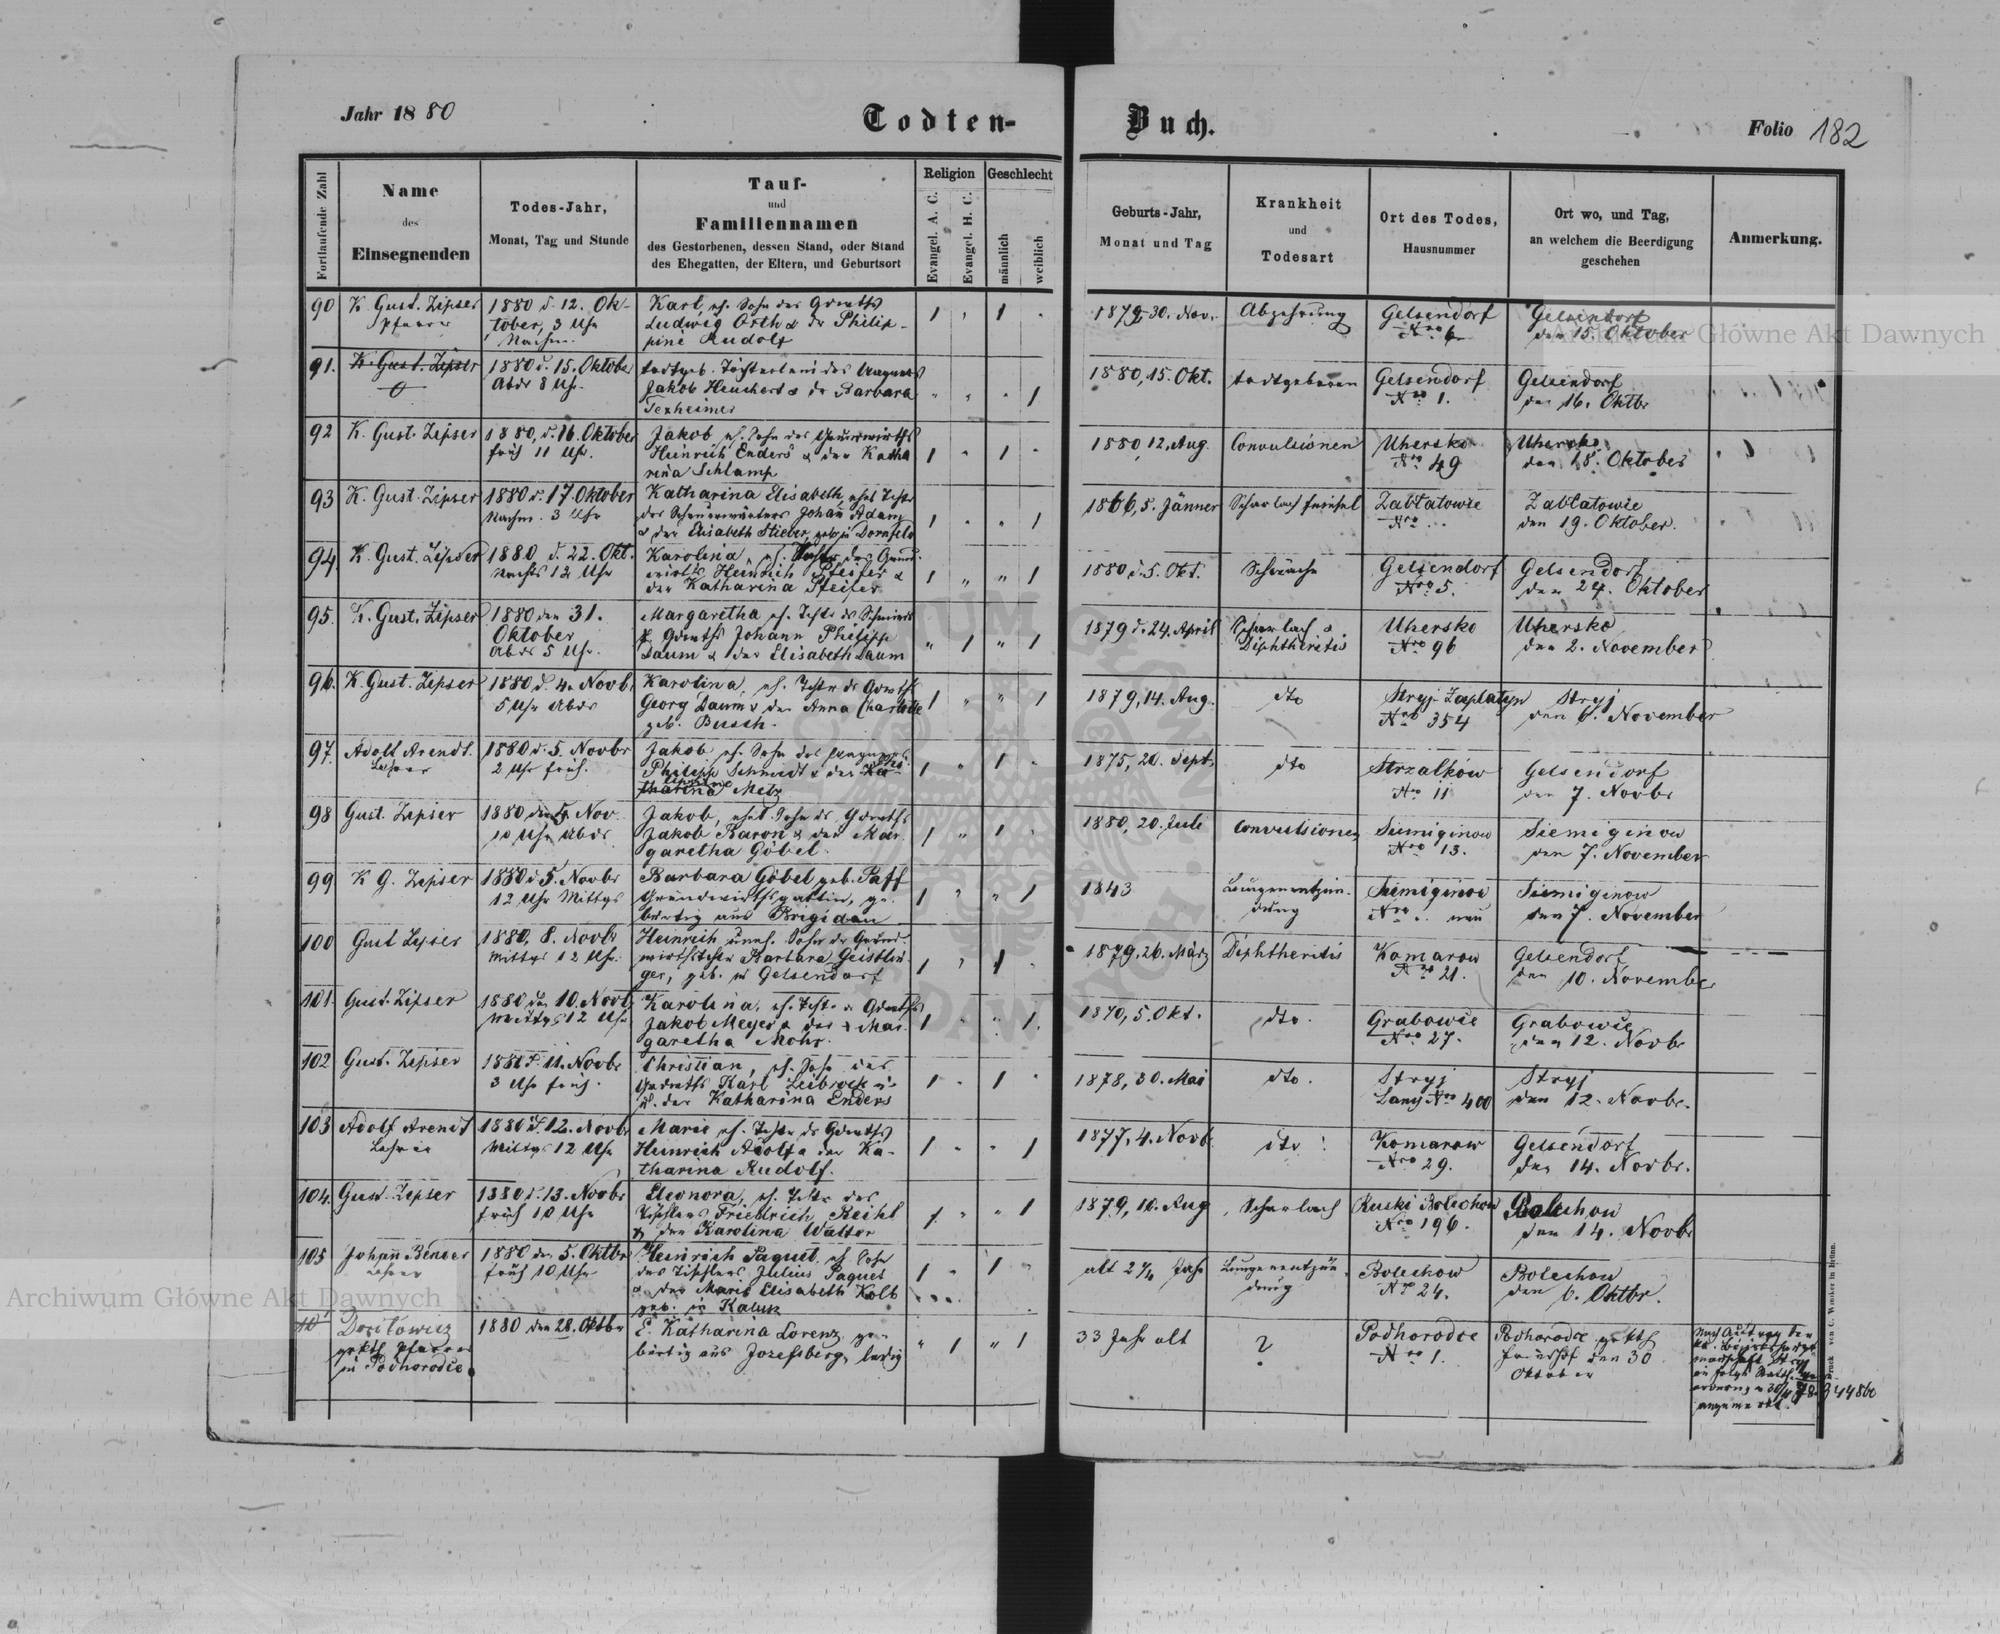 Jahr 1880
Todten-
Buch.
Folio 182
Fortlaufende Zahl
Name
des
Einsegnenden
Todes-Jahr,
Monat, Tag und Stunde
Tauf-
und
Familiennamen
des Gestorbenen, dessen Stand, oder Stand
des Ehegatten, der Eltern, und Geburtsort
Religion
Evangel. A. C.
Evangel. H. C.
Geschlecht
männlich
weiblich
Geburts-Jahr,
Monat und Tag
Krankheit
und
Todesart
Ort des Todes,
Hausnummer
Ort wo, und Tag,
an welchem die Beerdigung
geschehen
Anmerkung.
90 K. Gust. Zipser 1880 d. 12. Ok- Karl, eh. Sohn des Grwths 1 1 1879, 30. Nov. Abzehrung Gelsendorf Gelsendorf
Pfarrer tober, 3 Uhr Ludwig Orth & der Philip- Nro 6 den 15. Oktober
Nachm. pine Rudolf
91. K. Gust. Zipser 1880 d. 15. Oktober todtgeb. Töchterlein des 1 1880, 15. Okt. todtgeboren Gelsendorf Gelsendorf
Abds 8 Uhr. Jakob Heuchert & der Barbara Nro 1. den 16. Oktbr
Texheimer
92 K. Gust. Zipser 1880, d. 16. Oktober Jakob, eh. Sohn des 1 1 1880, 12. Aug. Convulsionen Uhersko Uhersko
früh 11 Uhr. Heinrich Enders & der Katha Nro 49 den 18. Oktober
rina Schlamp
93 K. Gust. Zipser 1880 d. 17. Oktober Katharina Elisabeth, ehel. Tocht 1 1 1866, 5. Jänner Scharlachfriesel Zablatowie Zablatowie
Nachm. 3 Uhr des Johann Adam Nro den 19. Oktober.
& der Elisabeth Stieber, geb. in Dornfeld
94. K. Gust. Zipser 1880 d. 22. Okt. Karolina, eh. Tochter des Grund- 1 1 1880 d. 5. Okt. Schwäche Gelsendorf Gelsendorf
Nachts 12 Uhr wirths Heinrich Pfeifer & Nro 5. den 24. Oktober
der Katharina Pfeifer
95. K. Gust. Zipser 1880 den 31. Margaretha eh. Tocht. des Schmieds 1 1 1879 d. 24. April Scharlach & Uhersko Uhersko
Oktober Grwths Johann Philipp Diphtheritis Nro 96 den 2. November
Abds 5 Uhr. Daum & der Elisabeth Daum
96. K. Gust. Zipser 1880 d. 4. Novb. Karolina, eh. Tocht. des Grwths 1 1 1879, 14. Aug. dto Stryj-Zaplatyn Stryj
5 Uhr Abds Georg Daum & der Anna Charlotte Nro 354 den 6. November
geb. Busch.
97. Adolf Arendt. 1880 d. 5. Novbr Jakob eh. Sohn des 1 1 1875, 20. Sept. dto Strzalków Gelsendorf
Lehrer 2 Uhr früh. Philipp Schmidt & der Nro 11 den 7. Novbr
tharina Metz
98 Gust. Zipser 1880 den Nov. Jakob, ehel. Sohn des Grwths 1 1 1880, 20. Juli Convulsionen Siemiginow Siemiginow
10 Uhr Abds Jakob Baron & der Mar- Nro 13. den 7. November
garetha Göbel.
99 K. G. Zipser 1880 d. 5. Novbr Barbara Göbel geb. Paff 1 1 1843 Lungenentzün- Siemiginow Siemiginow
12 Uhr Mittgs Grundwirthsgattin, ge- dung Nro neu den 7. November
bürtig aus Brigidau
100 Gust Zipser 1880, 8. Novbr Heinrich, uneh. Sohn der Grund- 1 1 1879, 26. März Diphtheritis Komarow Gelsendorf
Mittgs 12 Uhr. wirthstocht. Barbara Geistlin- Nro 21. den 10. November
ger, geb. in Gelsendorf
101. Gust. Zipser 1880 den 10. Novb. Karolina, eh. Tocht. des Grwths 1 1 1870, 5. Okt. dto. Grabowie Grabowie
Mittgs 12 Uhr Jakob Meyer & der Mar- Nro 27. den 12. Novbr
garetha Mohr.
102 Gust. Zipser 1880 d. 11. Novbr Christian, eh. Sohn des 1 1 1878, 30. Mai dto. Stryj Stryj
3 Uhr früh. Karl Leibrock Lany Nro 400 den 12. Novbr.
u. der Katharina Enders
103 Adolf Arendt 1880 d. 12. Novbr Marie eh. Tocht. des Grwths 1 1 1877, 4. Novb. dto Komarow Gelsendorf
Lehrer Mittgs 12 Uhr Heinrich Adolf & der Ka- Nro 29. den 14. Novbr.
tharina Rudolf.
104. Gust. Zipser 1880 d. 13. Novbr Eleonora, eh. Tocht. des 1 1 1879, 10. Aug Scharlach Ruski Bolechow Bolechow
früh 10 Uhr Tischlers Friedrich Reihl Nro 196. den 14. Novbr
& der Karolina Walter
105 Johann Bender 1880 den 5. Oktbr Heinrich Paquet, eh. Sohn 1 1 alt 2 1/4 Jahr Lungenentzün- Bolechow Bolechow
Lehrer früh 10 Uhr des Tischlers Julius Paquet dung Nro 24. den 6. Oktbr.
& der Marie Elisabeth Kolb
geb. in Kalusz
1880 den 28. Oktbr Katharina Lorenz, ge- 1 1 33 Jahr alt ? Podhorodce Podhorodce
Pfarrer bürtig aus Josefsberg, ledig Nro 1. Friedhof den 30
in Podhorodce Oktober
Nach Auftrag der
Druck von C. Winiker in Brünn.
Archiwum Główne Akt Dawnych
Archiwum Główne Akt Dawnych